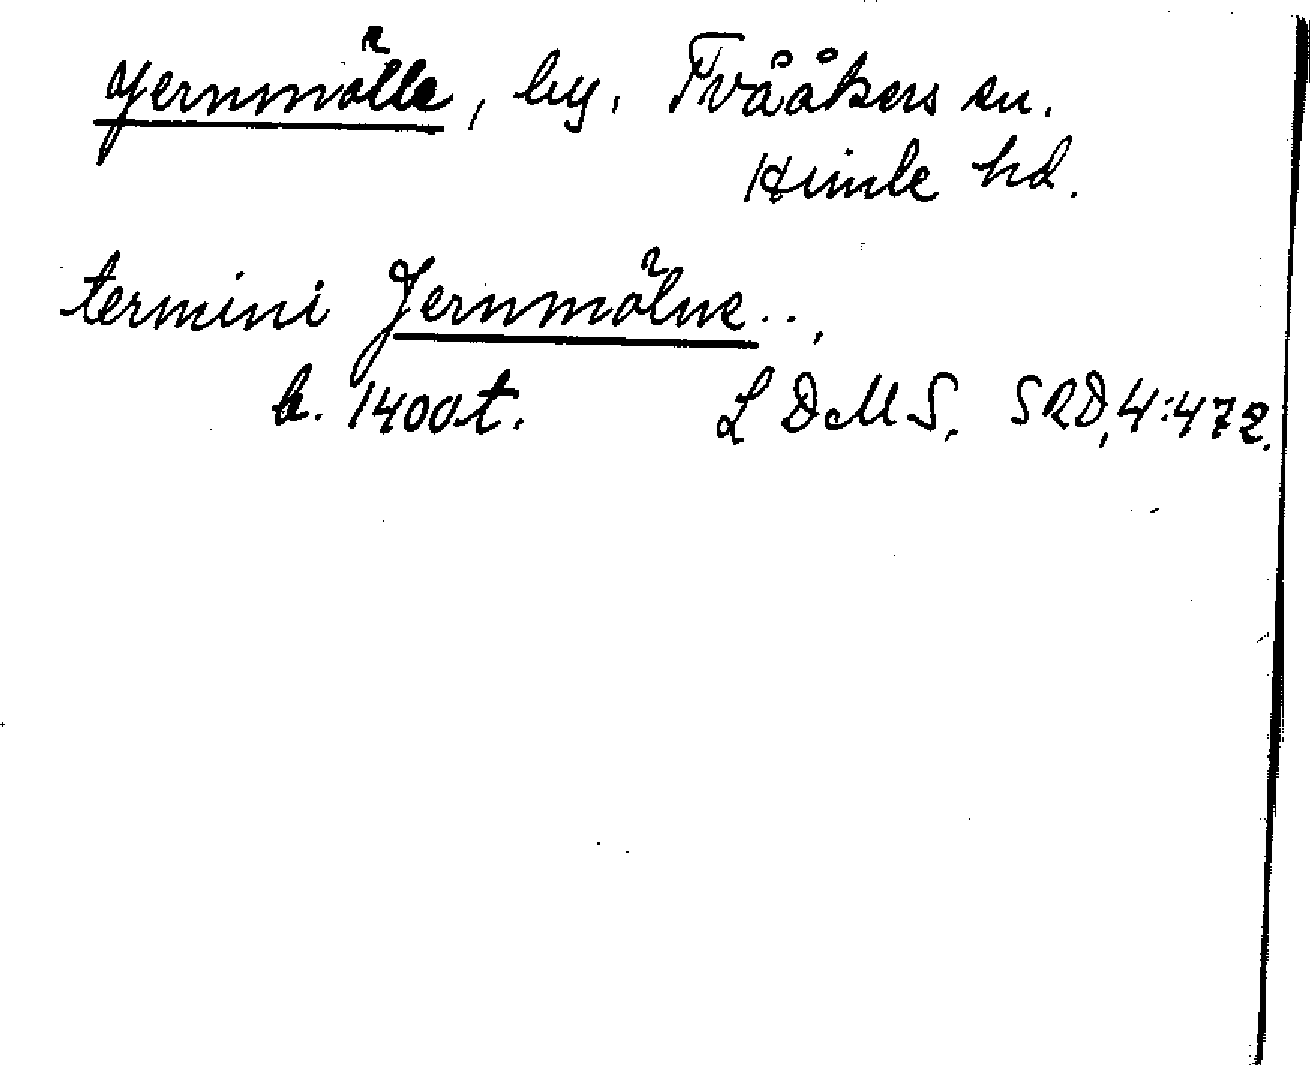 Jernmölle, by, Tvååkers sn.
Himle hd.
termini Jernmölne..,
b. 1400t. L D M S. SRD,4:472.